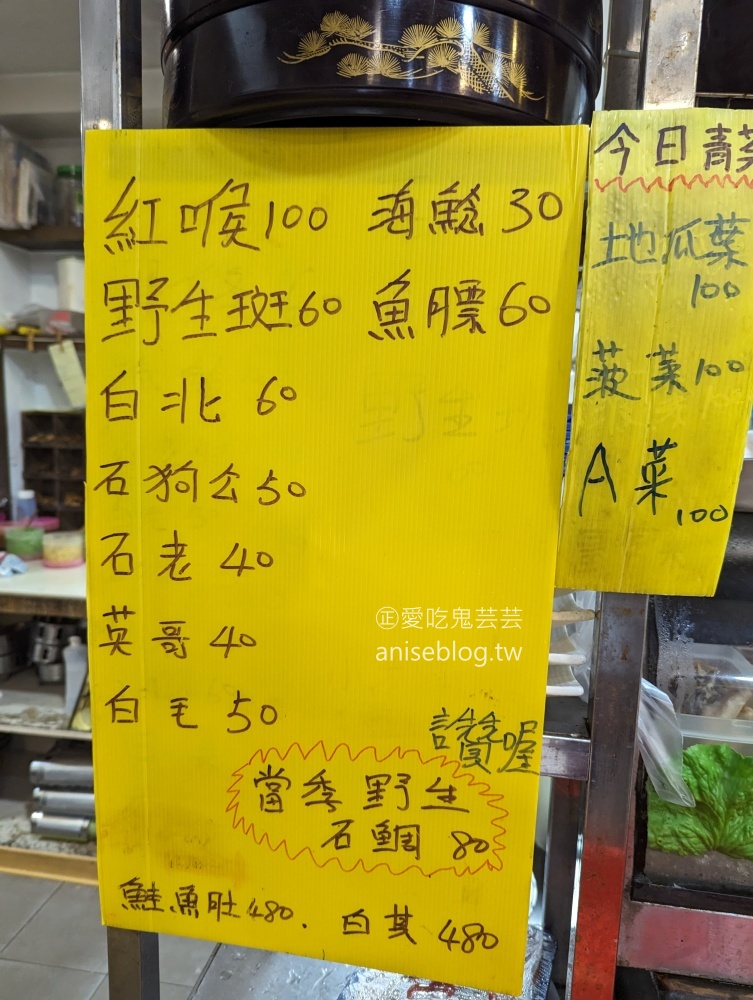 紅喉100 海鯰30
野生斑60 魚膘60
白北 60
石狗公50
石老 40
英哥 40
白毛 50
讚喔
當季野生
石鯛 80
鮭魚肚480. 白其 480
今日青菜
地瓜葉
100
菠菜100
A菜
100
㊣愛吃鬼芸芸
aniseblog.tw